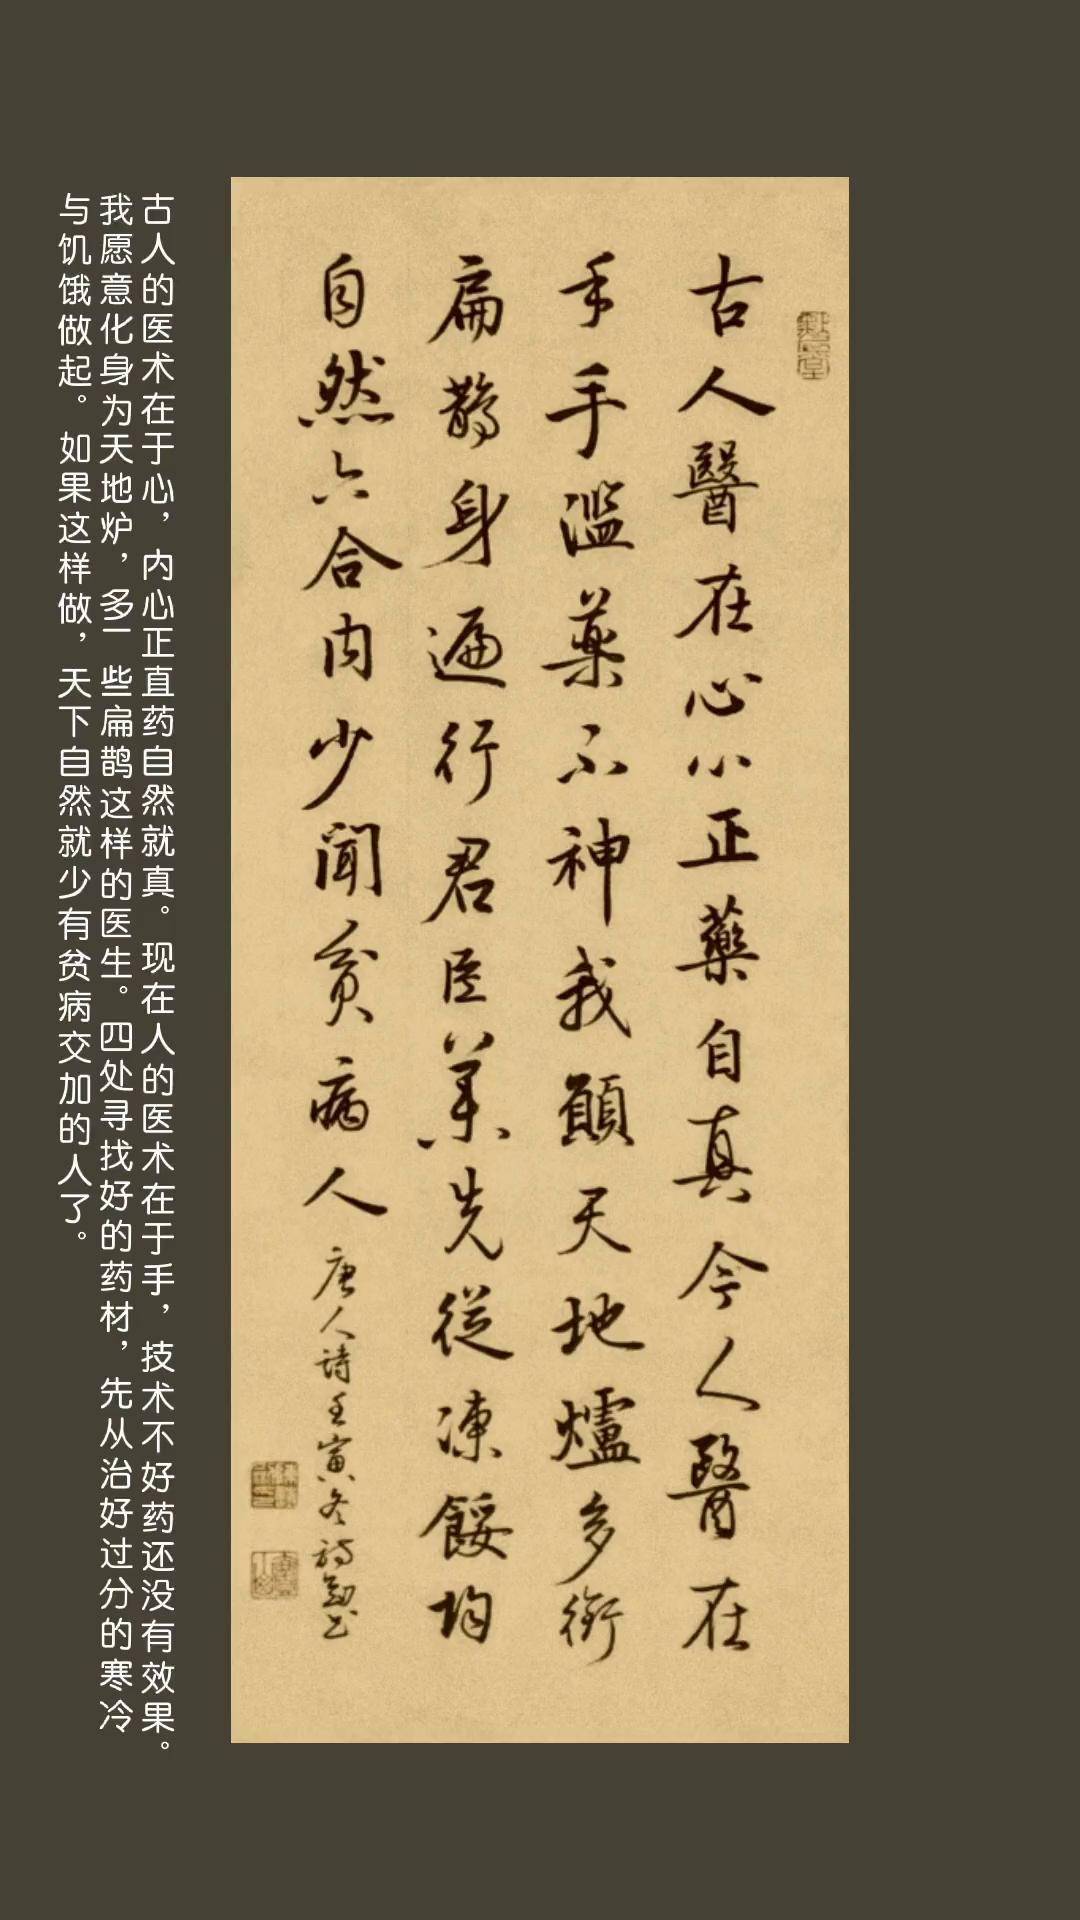 古人醫在心心正藥自真今人醫在
手手濫藥不神我願天地爐多銜
扁鵲身遍行君臣藥先從凍餒均
自然六合內少聞貧病人
唐人詩壬寅冬
古人的医术在于心，内心正直药自然就真。现在人的医术在于手，技术不好药还没有效果。
我愿意化身为天地炉，多一些扁鹊这样的医生。四处寻找好的药材，先从治好过分的寒冷
与饥饿做起。如果这样做，天下自然就少有贫病交加的人了。